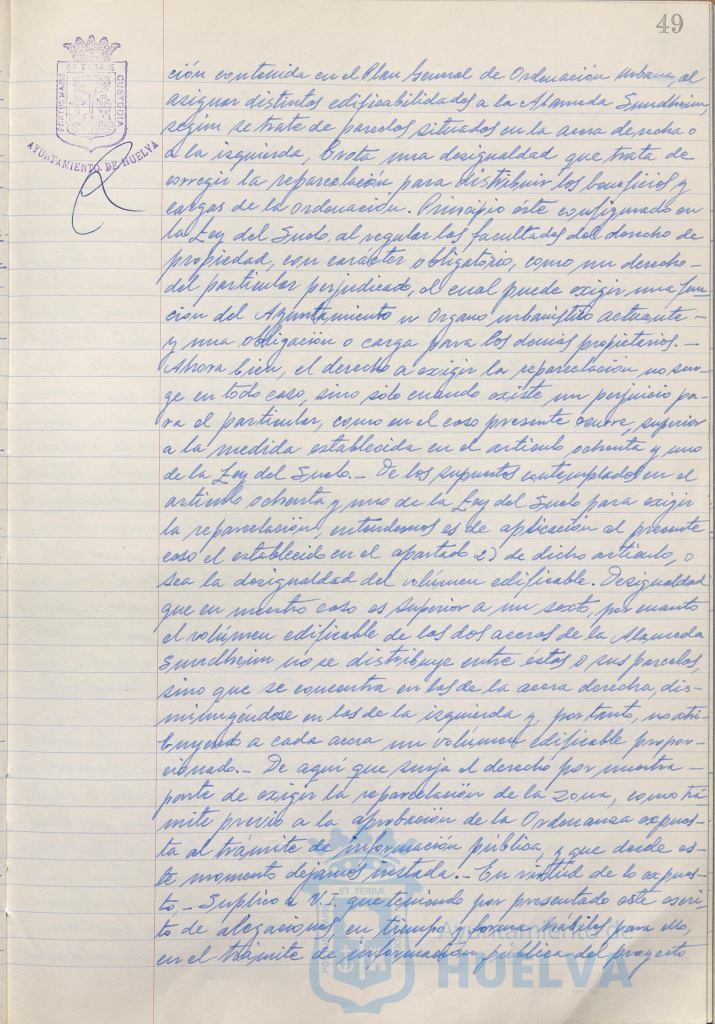 49
PORTUS MARIS ET TERRÆ CUSTODIA
AYUNTAMIENTO DE HUELVA
ción contenida en el Plan General de Ordenación Urbana, al
asignar distintas edificabilidades a la Alameda Sundheim,
según se trate de parcelas situadas en la acera derecha o
a la izquierda, brota una desigualdad que trata de
corregir la reparcelación para distribuir los beneficios y
cargas de la Ordenación. Principio éste configurado en
la Ley del Suelo, al regular las facultades del derecho de
propiedad, con carácter obligatorio, como un derecho-
del particular perjudicado, el cual puede exigir una fun-
ción del Ayuntamiento u Organo urbanístico actuante-
y una obligación o carga para los demás propietarios.-
Ahora bien, el derecho a exigir la reparcelación no sur-
ge en todo caso, sino sólo cuando existe un perjuicio pa-
ra el particular, como en el caso presente ocurre, superior
a la medida establecida en el artículo ochenta y uno
de la Ley del Suelo.- De los supuestos contemplados en el
artículo ochenta y uno de la Ley del Suelo para exigir
la reparcelación, entendemos es de aplicación al presente
caso el establecido en el apartado 2) de dicho artículo, o
sea la desigualdad del volúmen edificable. Desigualdad
que en nuestro caso es superior a un sexto, por cuanto
el volúmen edificable de las dos aceras de la Alameda
Sundheim no se distribuye entre éstas o sus parcelas,
sino que se concentra en las de la acera derecha, dis-
minuyéndose en las de la izquierda y, por tanto, no atri-
buyendo a cada acera un volúmen edificable propor-
cionado.- De aquí que surja el derecho por nuestra-
parte de exigir la reparcelación de la zona, como trá-
mite previo a la aprobación de la Ordenanza expues-
ta al trámite de información pública, y que desde es-
te momento dejamos instada.- En virtud de lo expues-
to,- Suplico a V.I. que teniendo por presentado este escri-
to de alegaciones, en tiempo y forma hábiles para ello,
en el trámite de información pública del proyecto
PORTUS MARIS ET TERRÆ
Ayuntamiento de
HUELVA